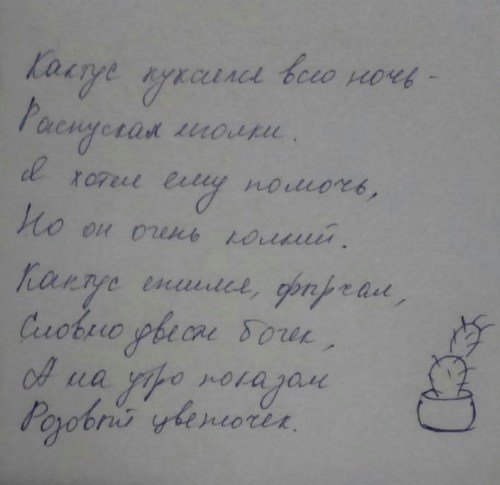 Кактус пухнет всю ночь -
Распускал иголки.
Я хотел ему помочь,
Но он очень колкий.
Кактус фырчал,
Словно двести бочек,
А на утро показал
Розовый цветочек.